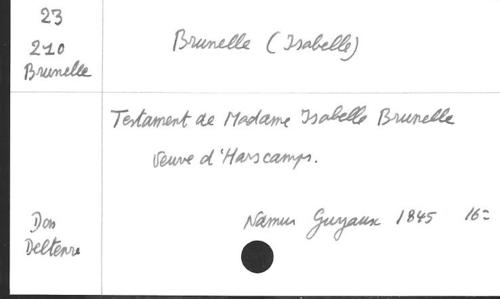 23
210
Brunelle
Brunelle (Isabelle)
Testament de Madame Isabelle Brunelle
Veuve d'Harscamps.
Namur Guyaux 1845 16=
Don
Deltenre